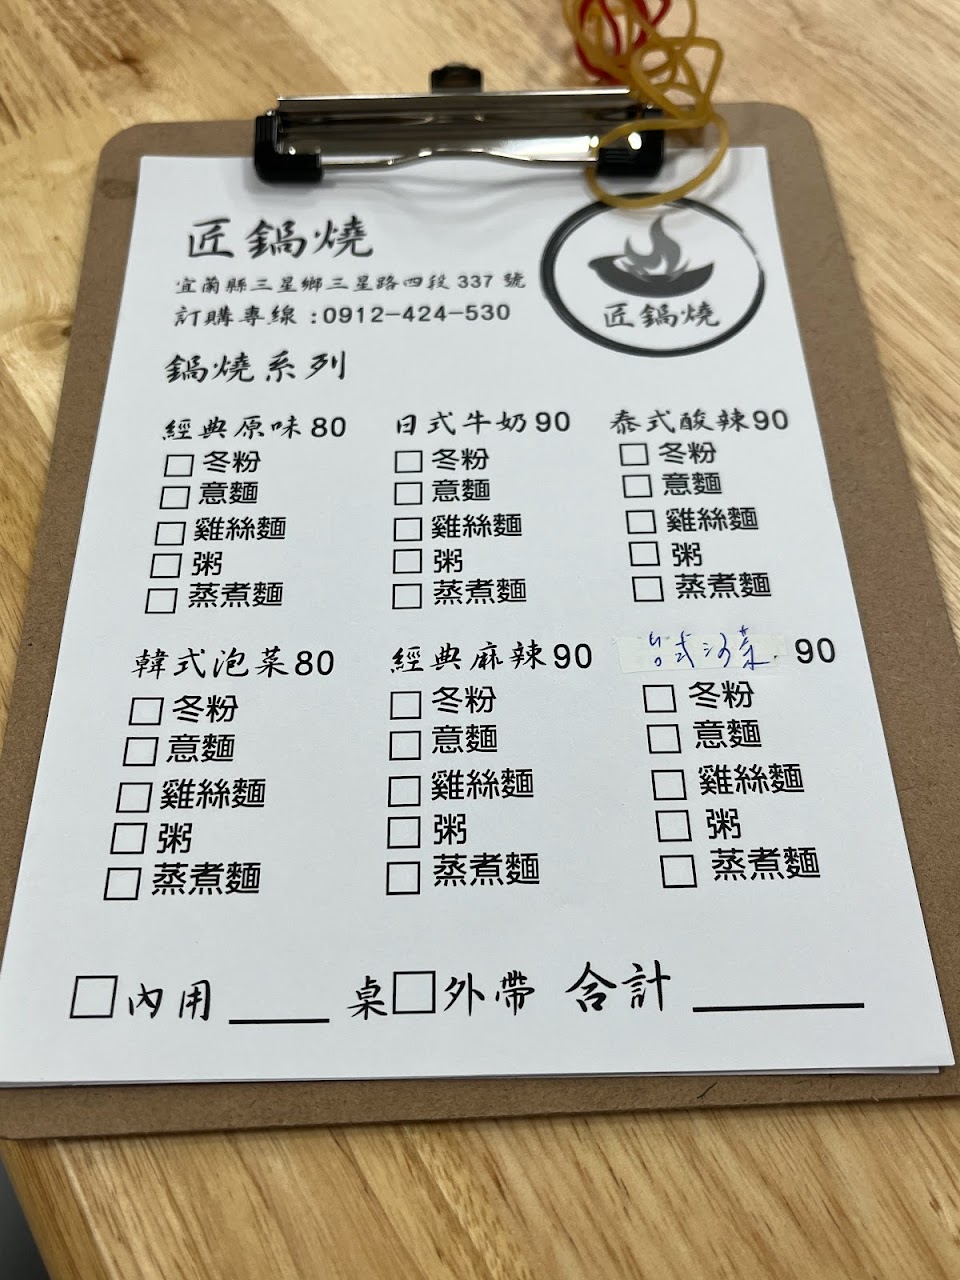 匠鍋燒
宜蘭縣三星鄉三星路四段 337 號
訂購專線 :0912-424-530
匠鍋燒
鍋燒系列
經典原味 80
冬粉
意麵
雞絲麵
粥
蒸煮麵
日式牛奶 90
冬粉
意麵
雞絲麵
粥
蒸煮麵
泰式酸辣 90
冬粉
意麵
雞絲麵
粥
蒸煮麵
韓式泡菜 80
冬粉
意麵
雞絲麵
粥
蒸煮麵
經典麻辣 90
冬粉
意麵
雞絲麵
粥
蒸煮麵
式 90
冬粉
意麵
雞絲麵
粥
蒸煮麵
內用 ____ 桌 外帶 合計 ______